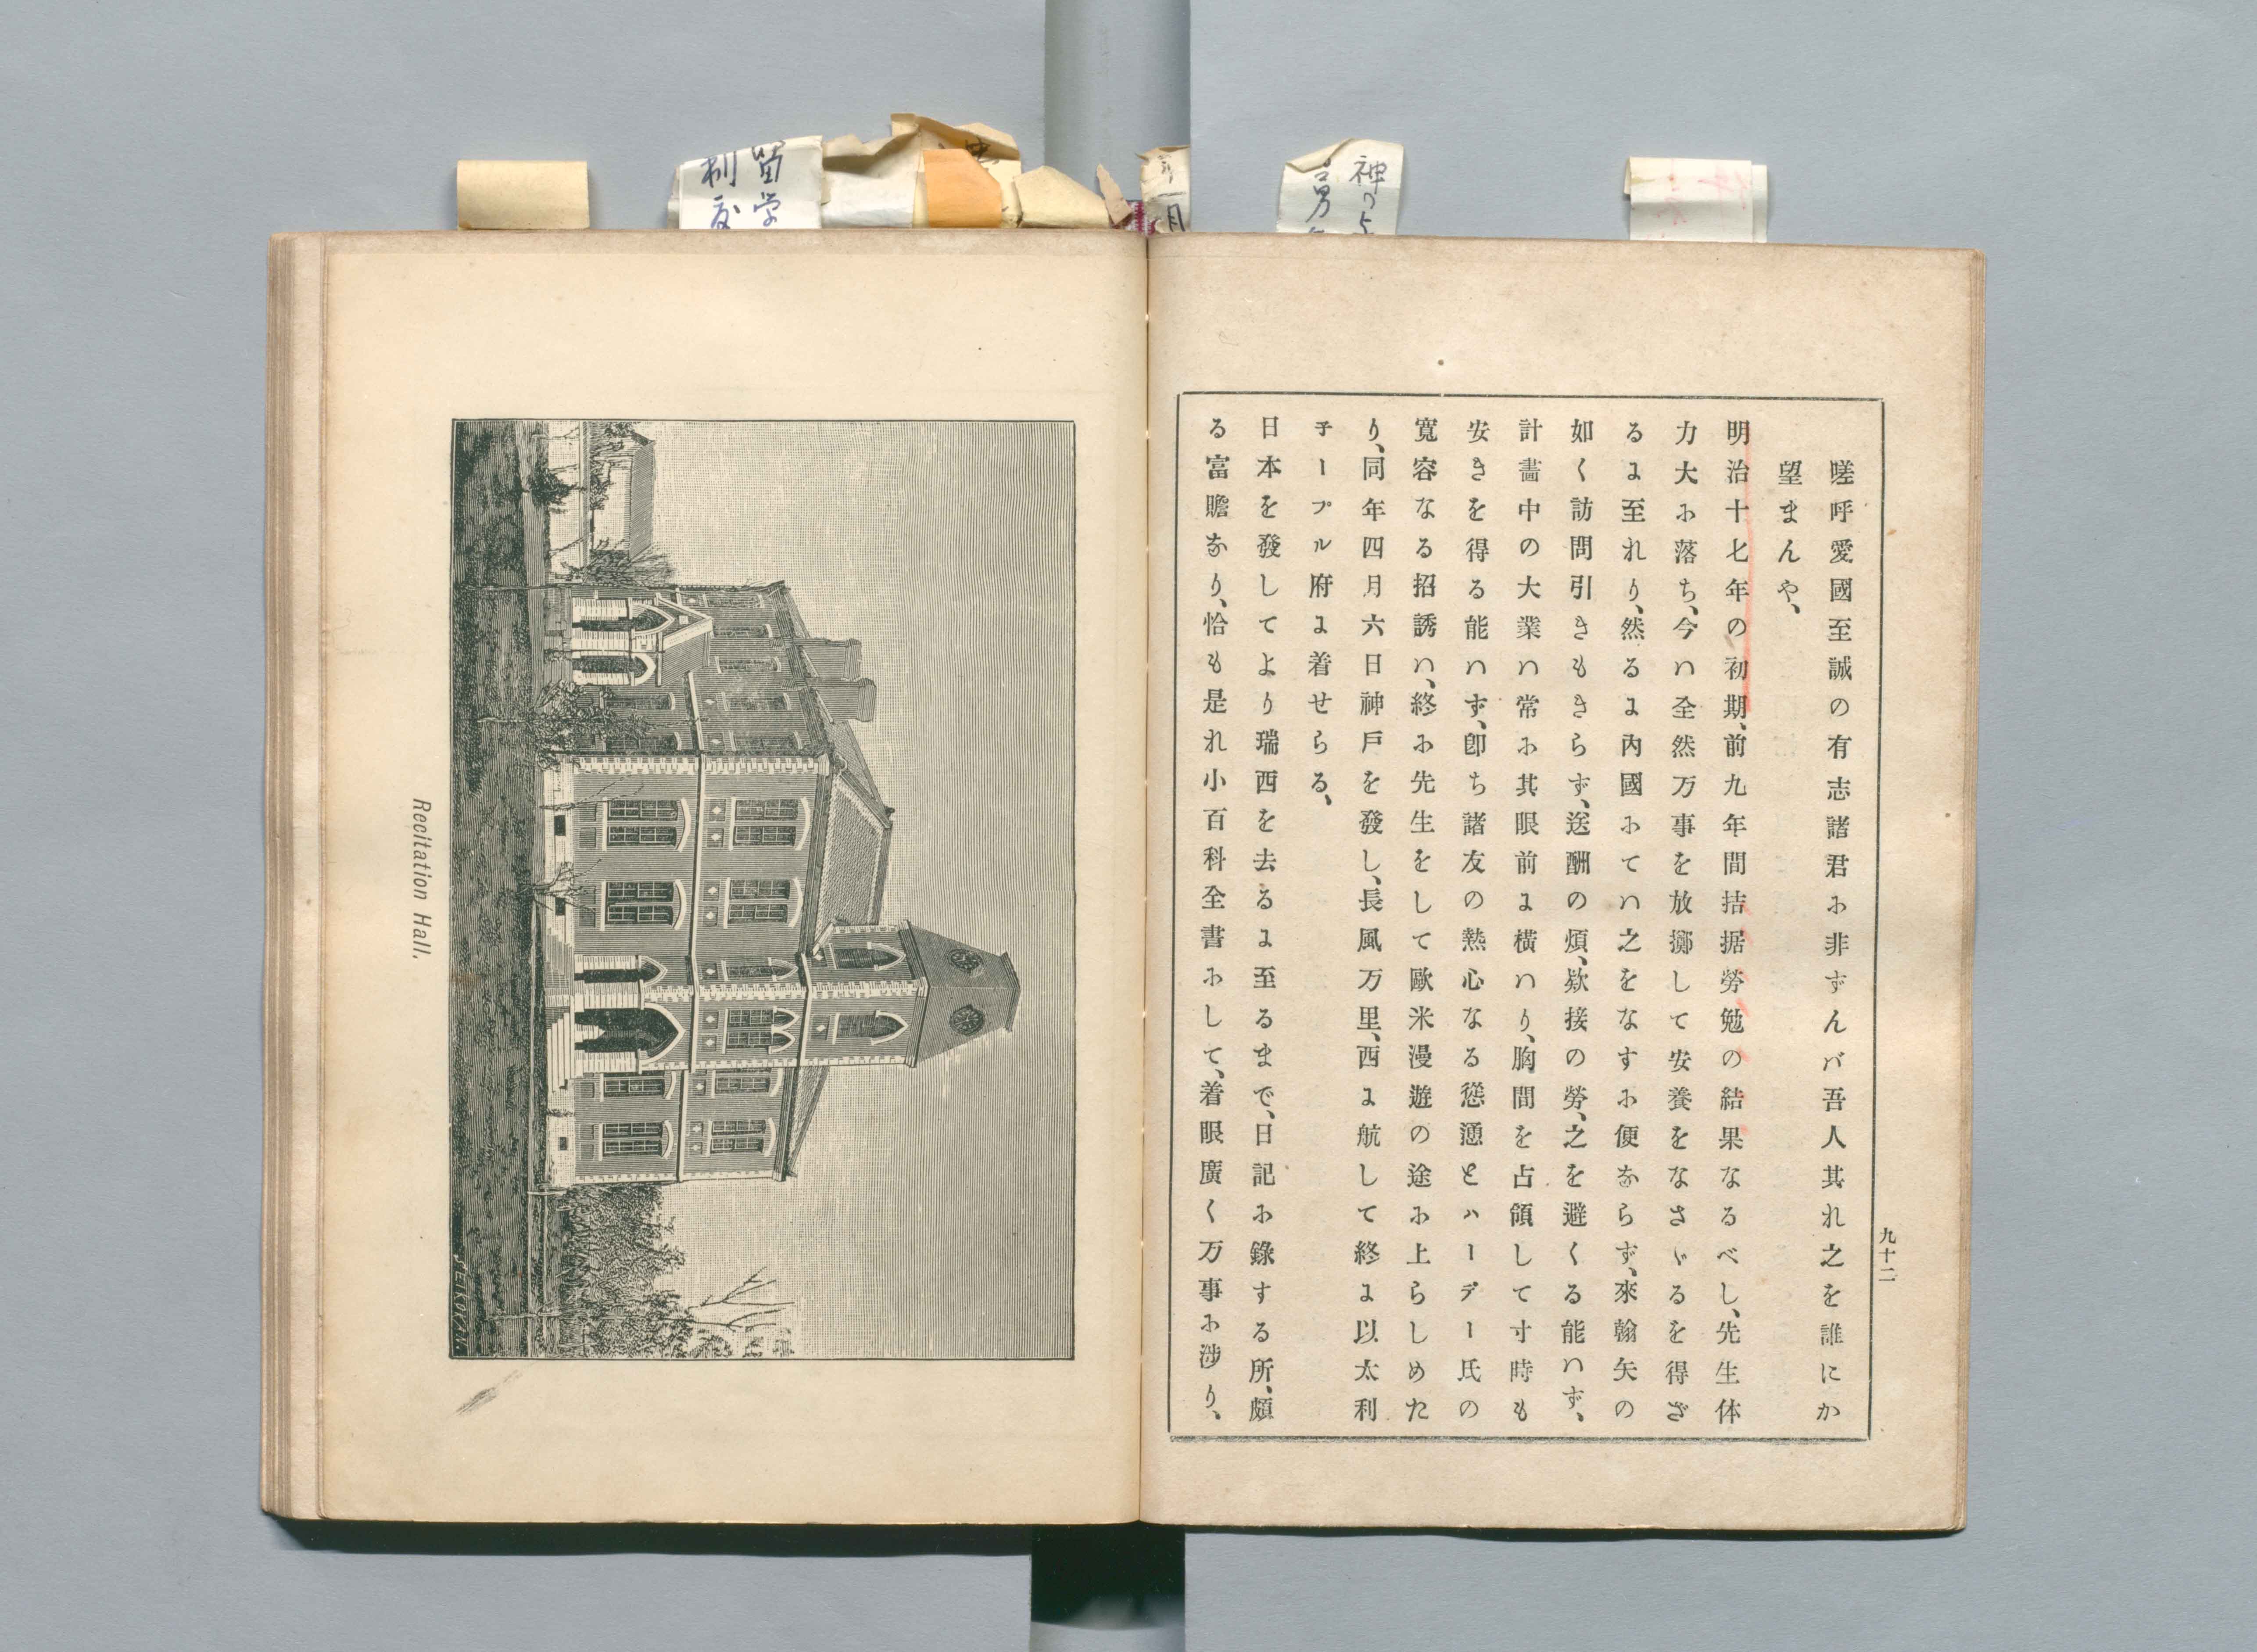 嗟呼愛國至誠の有志諸君に非ずんバ吾人其れ之を誰にか
望まんや、
明治十七年の初期、前九年間拮据勞勉の結果なるべし、先生体
力大に落ち、今ハ全然万事を放擲して安養をなさゞるを得ざ
るに至れり、然るに內國にてハ之をなすに便ならず、來翰矢の
如く訪問引きもきらず、送酬の煩、欵接の勞、之を避くる能ハず、
計畵中の大業ハ常に其眼前に橫ハり、胸間を占領して寸時も
安きを得る能ハず、卽ち諸友の熱心なる慫慂とハーデー氏の
寬容なる招誘ハ、終に先生をして歐米漫遊の途に上らしめた
り、同年四月六日神戶を發し、長風万里、西に航して終に以太利
子ープル府に着せらる、
日本を發してより瑞西を去るに至るまで、日記に錄する所、頗
る富贍なり、恰も是れ小百科全書にして、着眼廣く万事に涉り、
九十二
Recitation Hall.
SEIKOKAN.
留学
制度
神のよ
月